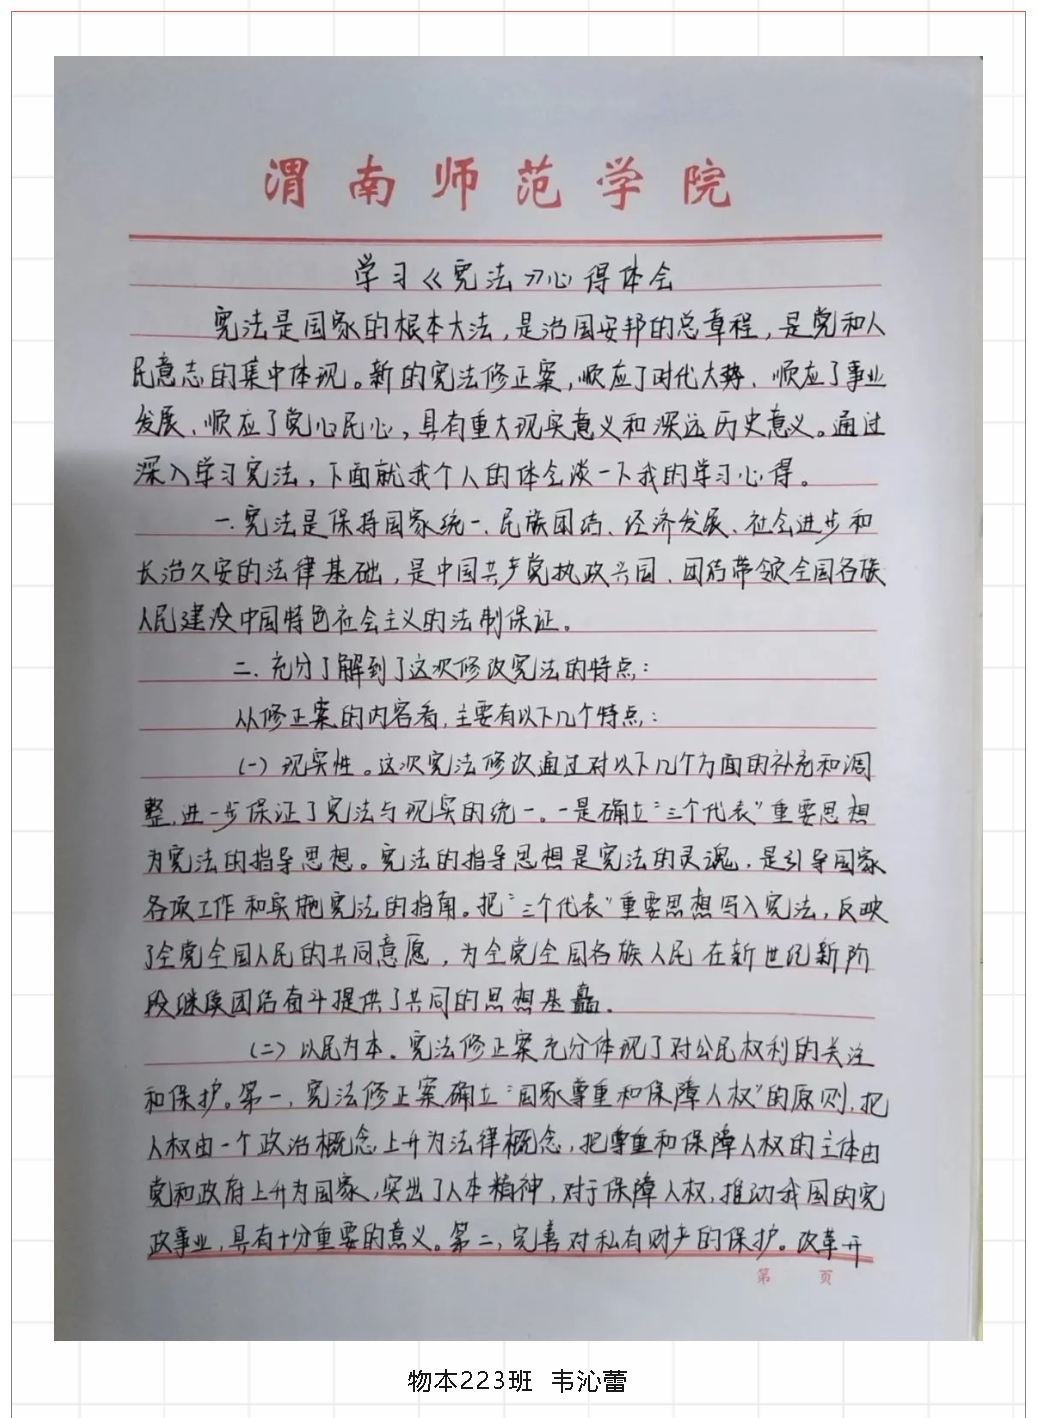 渭南师范学院
学习《宪法》心得体会
宪法是国家的根本大法，是治国安邦的总章程，是党和人
民意志的集中体现。新的宪法修正案，顺应了时代大势、顺应了事业
发展、顺应了党心民心，具有重大现实意义和深远历史意义。通过
深入学习宪法，下面就我个人的体会谈一下我的学习心得。
一.宪法是保持国家统一、民族团结、经济发展、社会进步和
长治久安的法律基础，是中国共产党执政兴国、团结带领全国各族
人民建设中国特色社会主义的法制保证。
二.充分了解到了这次修改宪法的特点：
从修正案的内容看，主要有以下几个特点：
(一) 现实性。这次宪法修改通过对以下几个方面的补充和调
整，进一步保证了宪法与现实的统一。一是确立“三个代表”重要思想
为宪法的指导思想。宪法的指导思想是宪法的灵魂，是引导国家
各项工作和实施宪法的指南。把“三个代表”重要思想写入宪法，反映
了全党全国人民的共同意愿，为全党全国各族人民在新世纪新阶
段继续团结奋斗提供了共同的思想基础.
(二) 以民为本。宪法修正案充分体现了对公民权利的关注
和保护。第一，宪法修正案确立“国家尊重和保障人权”的原则，把
人权由一个政治概念上升为法律概念，把尊重和保障人权的主体由
党和政府上升为国家，突出了人本精神，对于保障人权，推动我国的宪
政事业，具有十分重要的意义。第二，完善对私有财产的保护。改革开
第 页
物本223班 韦沁蕾